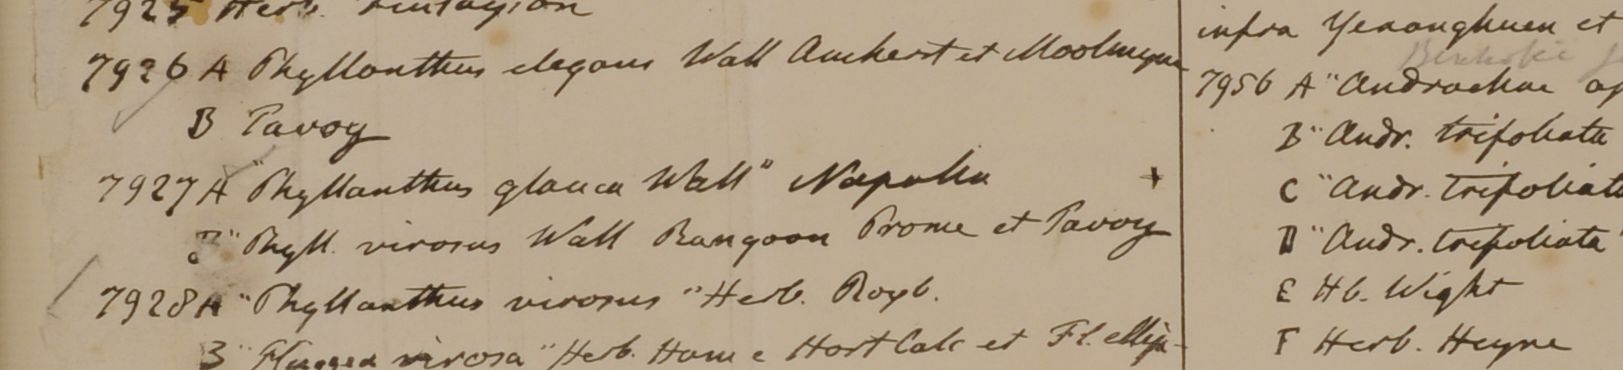 7925 Herb.
7926 A Phyllanthus elegans Wall Amherst et Moolmyne
B Tavoy
7927 A "Phyllanthus glauca Wall" Napalia +
B "Phyll. virosus Wall Rangoon Prome et Tavoy
7928 A "Phyllanthus virosus" Herb. Roxb.
B "Fluggea virosa" Herb. Ham e Hort Calc et Fl. ellip-
infra Yenanghuen et
7956 A "Andrachne ap
B "Andr. trifoliata
C "Andr. trifoliat
D "Andr. trifoliata"
E Hb. Wight
F Herb. Heyne